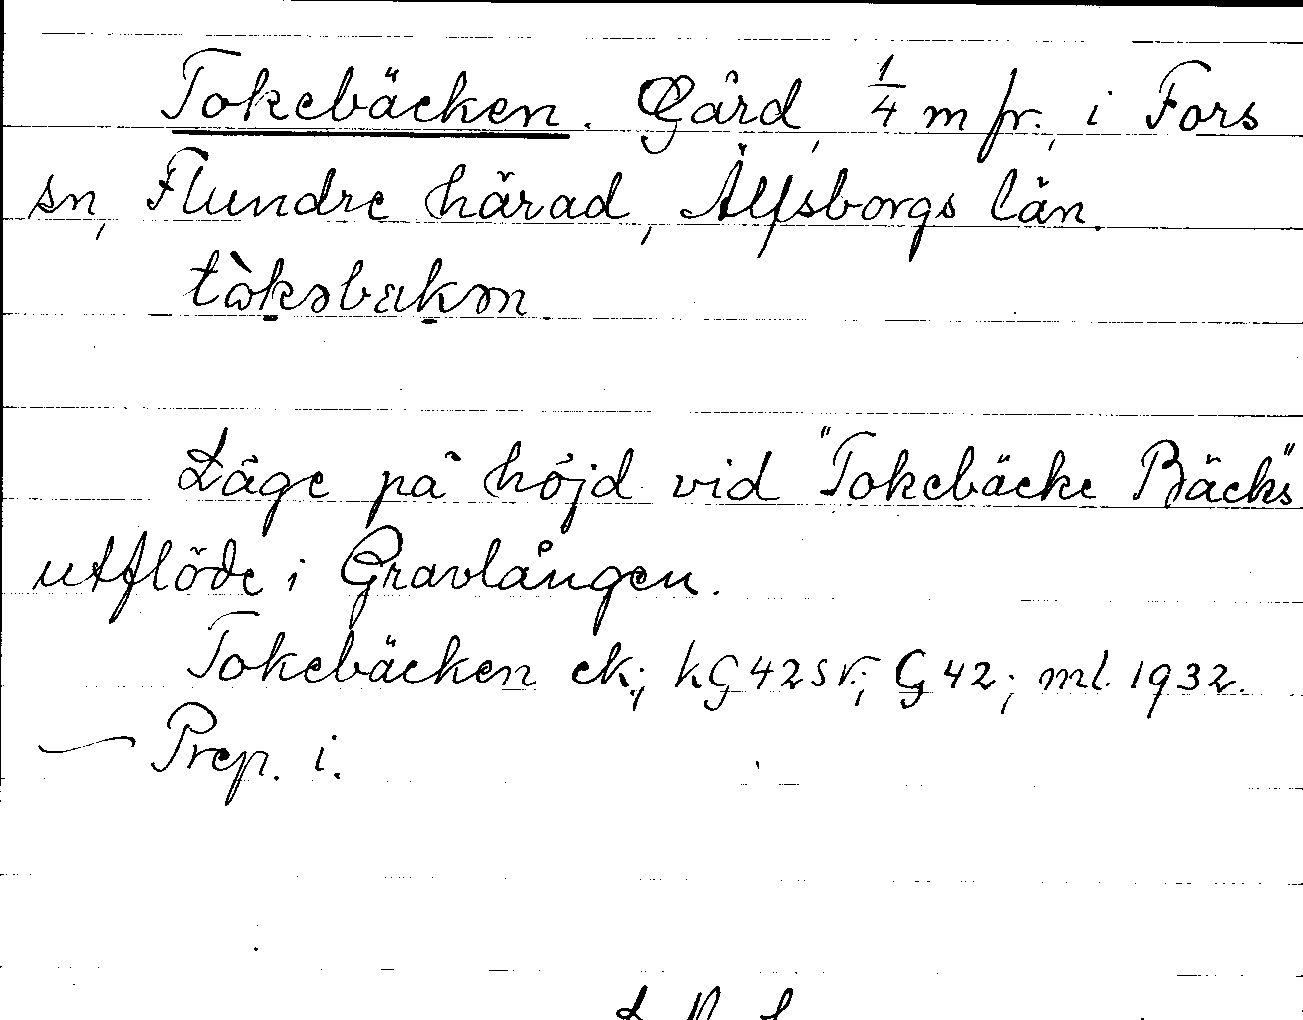 Tokebäcken. Gård, 1/4 m fr., i Fors
sn, Flundre härad, Älfsborgs län.
Läge på höjd vid "Tokebäcke Bäcks"
utflöde i Gravlången.
Tokebäcken ek; hG 42 SV; G 42; ml. 1932.
— Prep. i.